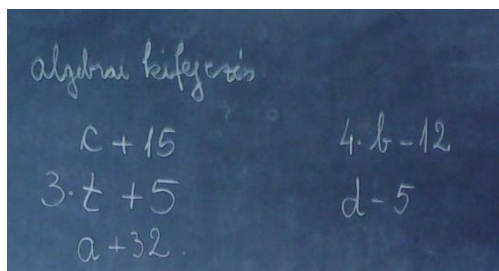 algebrai kifejezés
c + 15
3·t + 5
a + 32.
4·b - 12
d - 5